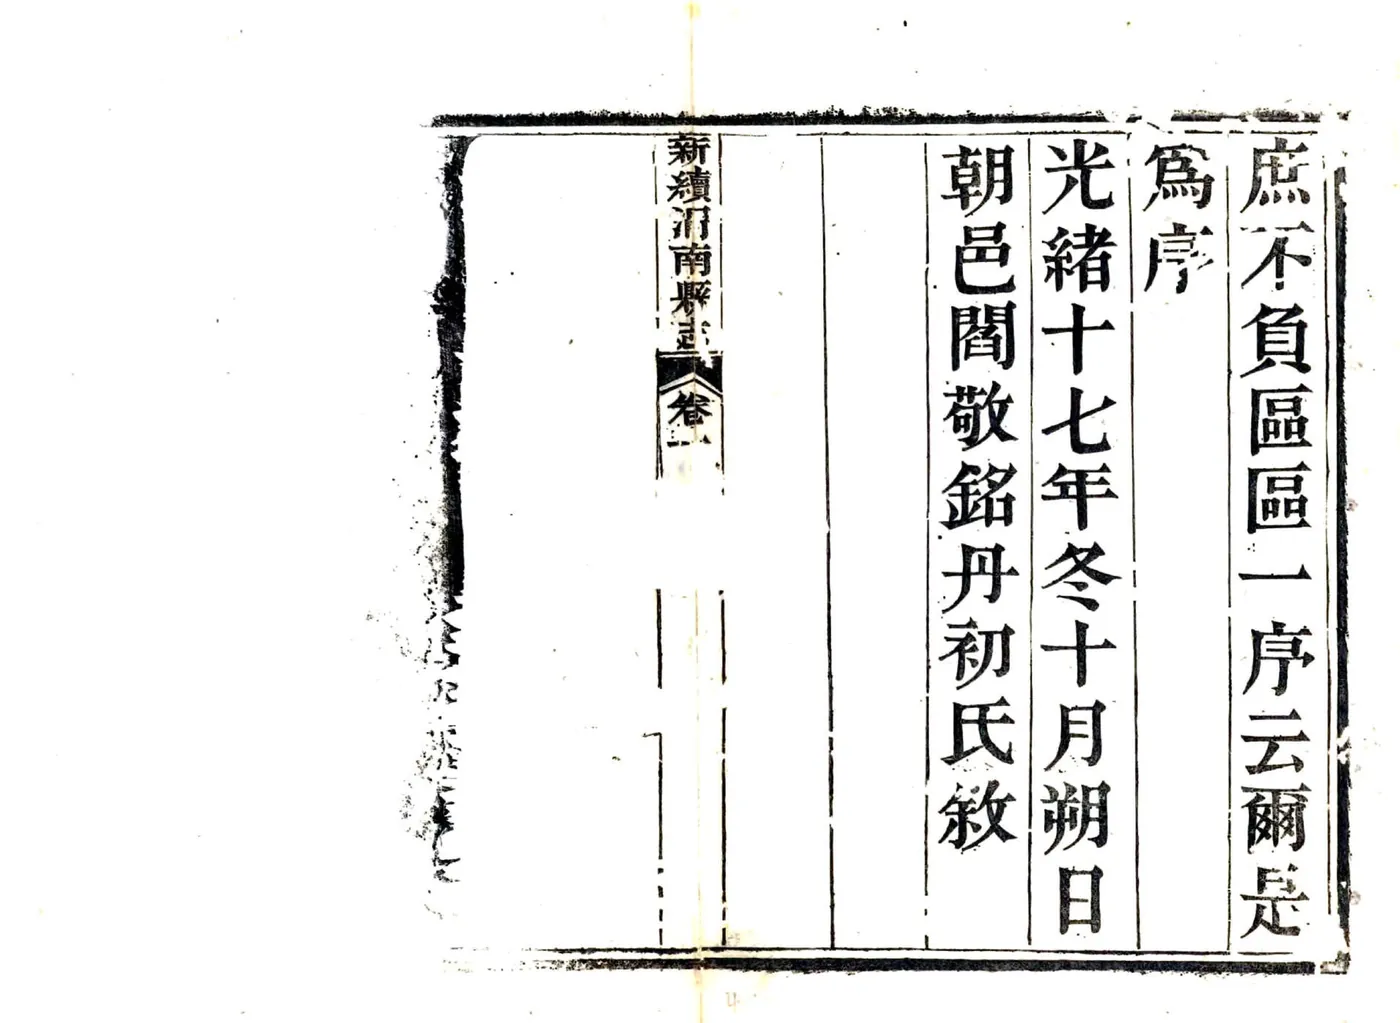 庶不負區區一序云爾是
爲序
光緒十七年冬十月朔日
朝邑閻敬銘丹初氏敘
新續渭南縣志
卷一